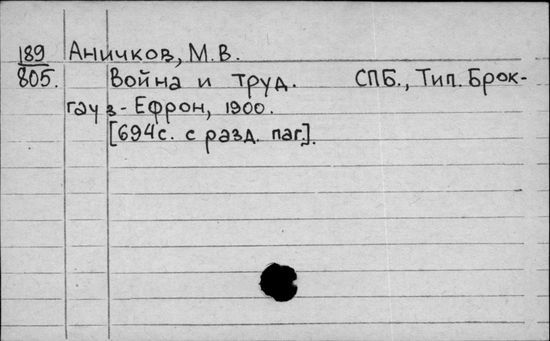 189 Аничков, М.В.
805. Война и труд. СПБ., Тип. Брок-
гауз-Ефрон, 1900.
[694с. с разд. паг.].